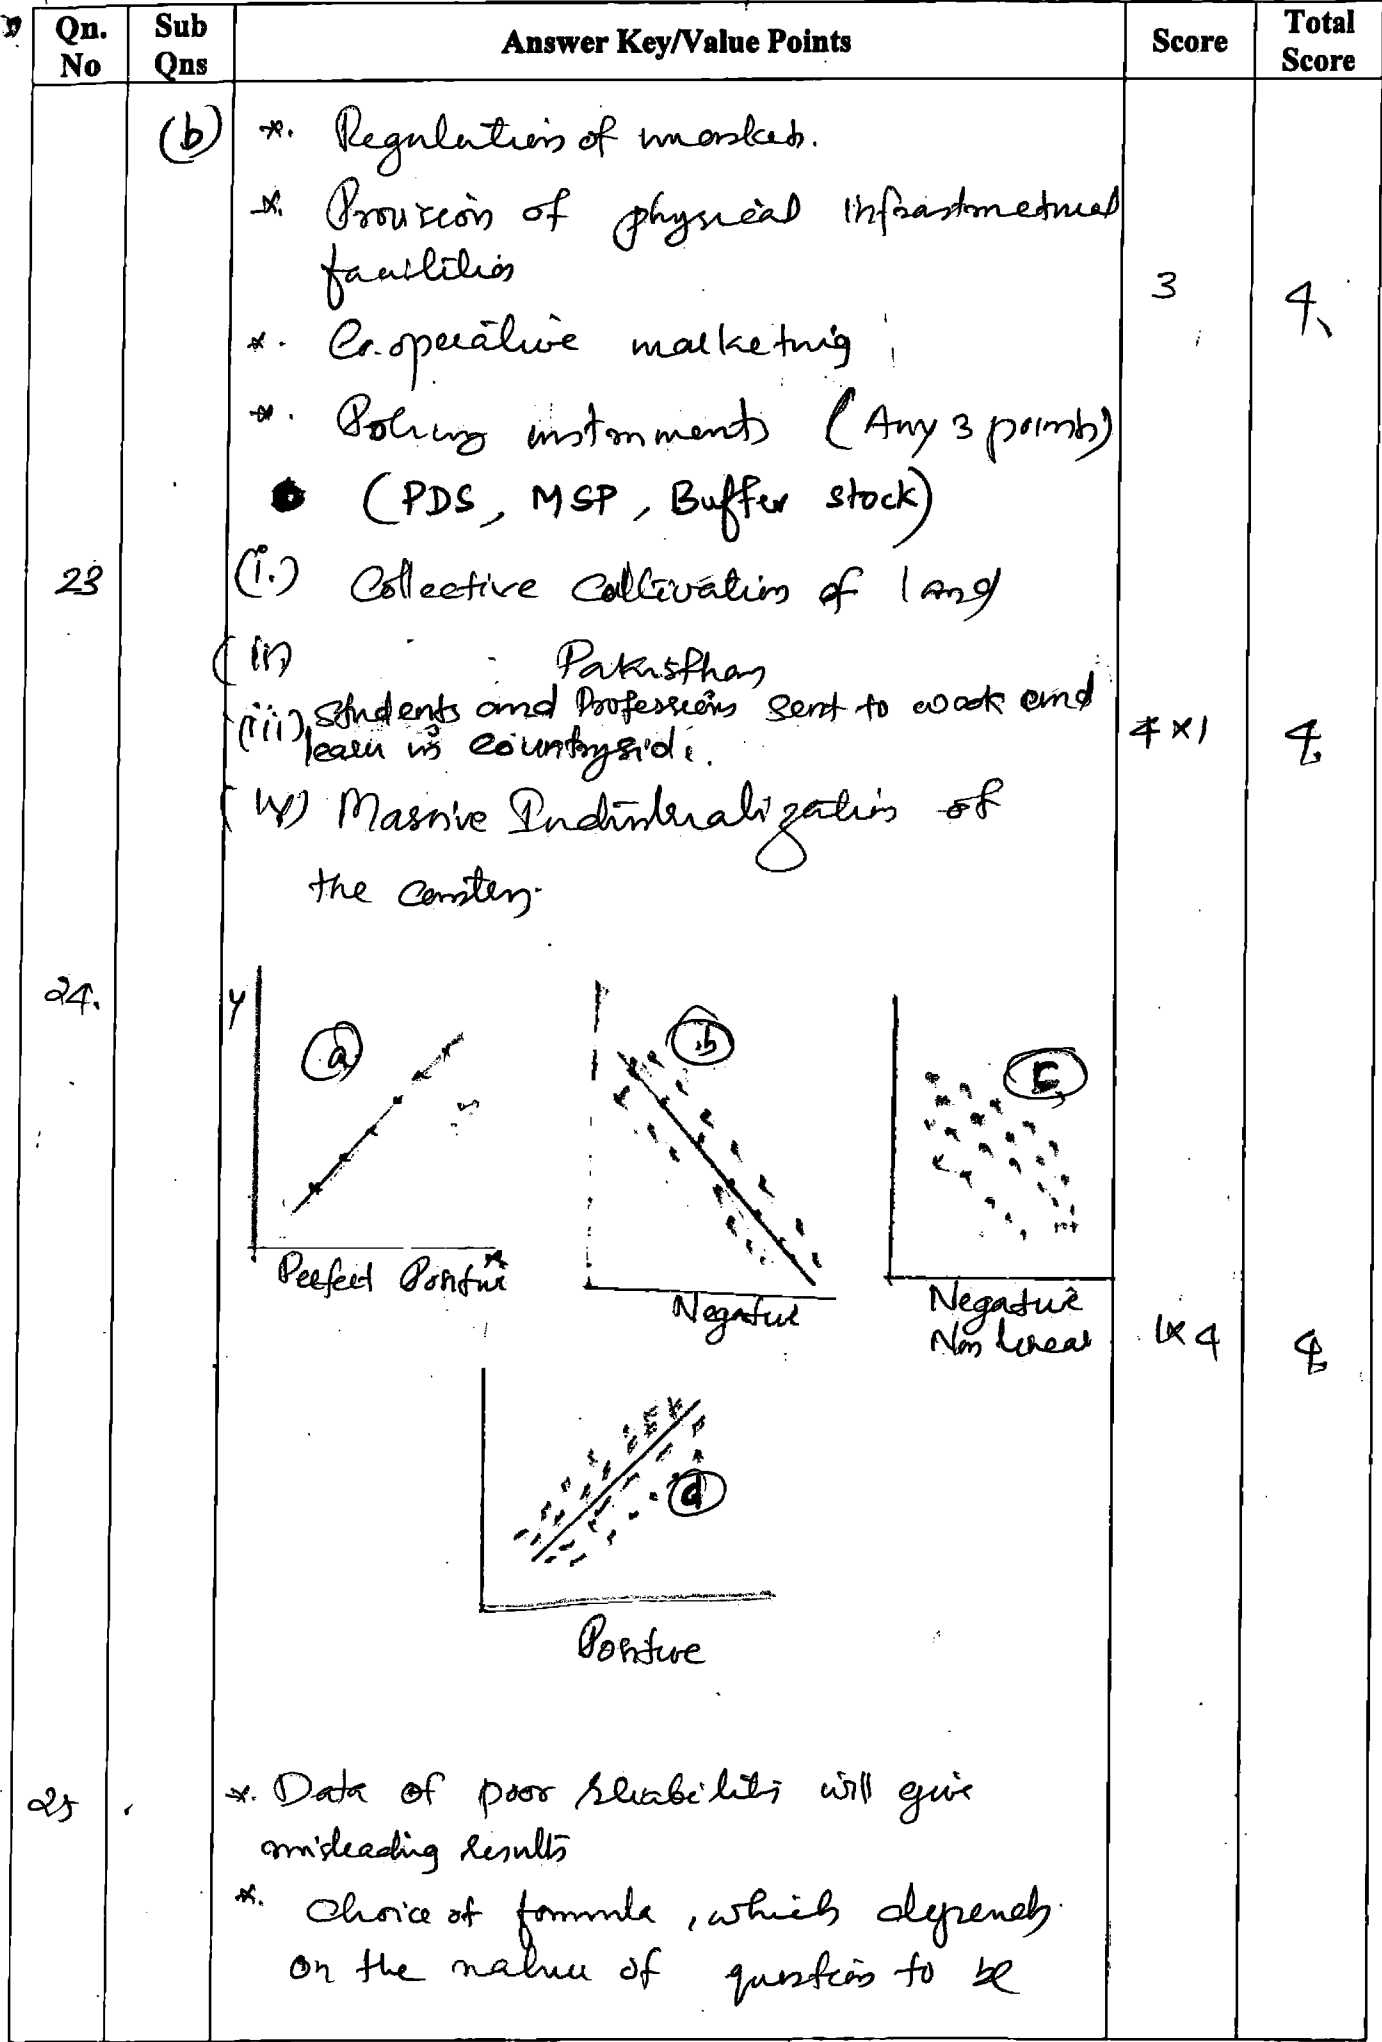 Qn. No
Sub Qns
Answer Key/Value Points
Score
Total Score
(b)
*. Regulation of markets.
*. Provision of physical infrastructural
facilities
3
4
*. Co.operative marketing
*. Policy instruments (Any 3 points)
(PDS, MSP, Buffer stock)
23
(i.) Collective Cultivation of land
(ii) Pakisthan
(iii) Students and Professions sent to work and
learn in countryside.
4x1
4
(iv) Massive Industralization of
the country.
24.
Y
a
b
c
X
Perfect Positive
Negative
Negative
Non linear
1x4
4
d
Positive
25
*. Data of poor reliability will give
misleading results
*. Choice of formula, which depends
on the nature of question to be